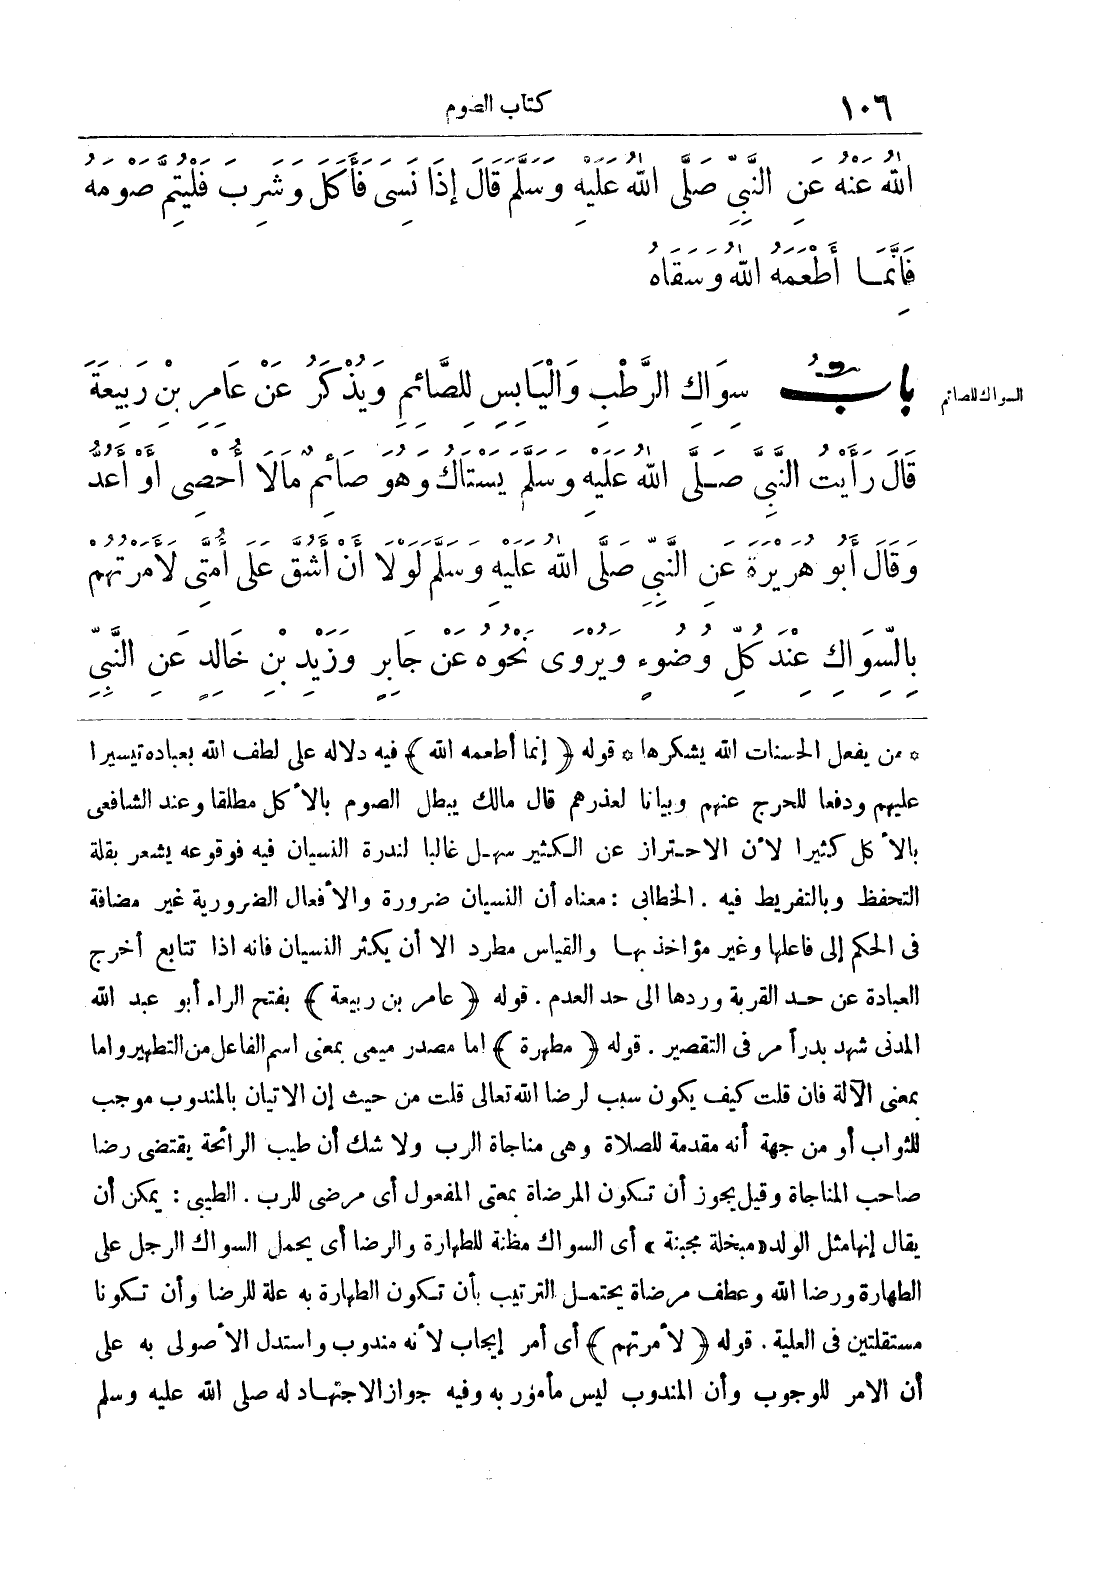 ١٠٦ كتاب الصوم
اللهُ عَنْهُ عَنِ النَّبِيِّ صَلَّى اللهُ عَلَيْهِ وَسَلَّمَ قَالَ إِذَا نَسِىَ فَأَكَلَ وَشَرِبَ فَلْيُتِمَّ صَوْمَهُ
فَإِنَّمَا أَطْعَمَهُ اللهُ وَسَقَاهُ
بابُ سِوَاكِ الرَّطْبِ وَالْيَابِسِ لِلصَّائِمِ وَيُذْكَرُ عَنْ عَامِرِ بْنِ رَبِيعَةَ
السواك للصائم
قَالَ رَأَيْتُ النَّبِىَّ صَلَّى اللهُ عَلَيْهِ وَسَلَّمَ يَسْتَاكُ وَهُوَ صَائِمٌ مَالَا أُحْصِى أَوْ أَعُدُّ
وَقَالَ أَبُو هُرَيْرَةَ عَنِ النَّبِيِّ صَلَّى اللهُ عَلَيْهِ وَسَلَّمَ لَوْلَا أَنْ أَشُقَّ عَلَى أُمَّتِى لَأَمَرْتُهُمْ
بِالسِّوَاكِ عِنْدَ كُلِّ وُضُوءٍ وَيُرْوَى نَحْوُهُ عَنْ جَابِرٍ وَزَيْدِ بْنِ خَالِدٍ عَنِ النَّبِيِّ
* من يفعل الحسنات الله يشكرها * قوله ﴿ إنما أطعمه الله ﴾ فيه دلاله على لطف الله بعباده تيسيرا
عليهم ودفعا للحرج عنهم وبيانا لعذرهم قال مالك يبطل الصوم بالأكل مطلقا وعند الشافعى
بالأكل كثيرا لأن الاحتراز عن الكثير سهل غالبا لندرة النسيان فيه فوقوعه يشعر بقلة
التحفظ وبالتفريط فيه . الخطابى : معناه أن النسيان ضرورة والأفعال الضرورية غير مضافة
فى الحكم إلى فاعلها وغير مؤاخذ بها والقياس مطرد الا أن يكثر النسيان فانه اذا تتابع أخرج
العبادة عن حد القربة وردها الى حد العدم . قوله ﴿ عامر بن ربيعة ﴾ بفتح الراء أبو عبد الله
المدنى شهد بدرأ مر فى التقصير . قوله ﴿ مطهرة ﴾ اما مصدر ميمى بمعنى اسم الفاعل من التطهير واما
بمعنى الآلة فان قلت كيف يكون سبب لرضا الله تعالى قلت من حيث إن الاتيان بالمندوب موجب
للثواب أو من جهة أنه مقدمة للصلاة وهى مناجاة الرب ولا شك أن طيب الرائحة يقتضى رضا
صاحب المناجاة وقيل يجوز أن تكون المرضاة بمعنى المفعول أى مرضى للرب . الطيبى : يمكن أن
يقال إنها مثل الولد «مبخلة مجبنة » أى السواك مظنة للطهارة والرضا أى يحمل السواك الرجل على
الطهارة ورضا الله وعطف مرضاة يحتمل الترتيب بأن تكون الطهارة به علة للرضا وأن تكونا
مستقلتين فى العلية . قوله ﴿ لأمرتهم ﴾ أى أمر إيجاب لأنه مندوب واستدل الأصولى به على
أن الامر للوجوب وأن المندوب ليس مأمؤر به وفيه جواز الاجتهاد له صلى الله عليه وسلم